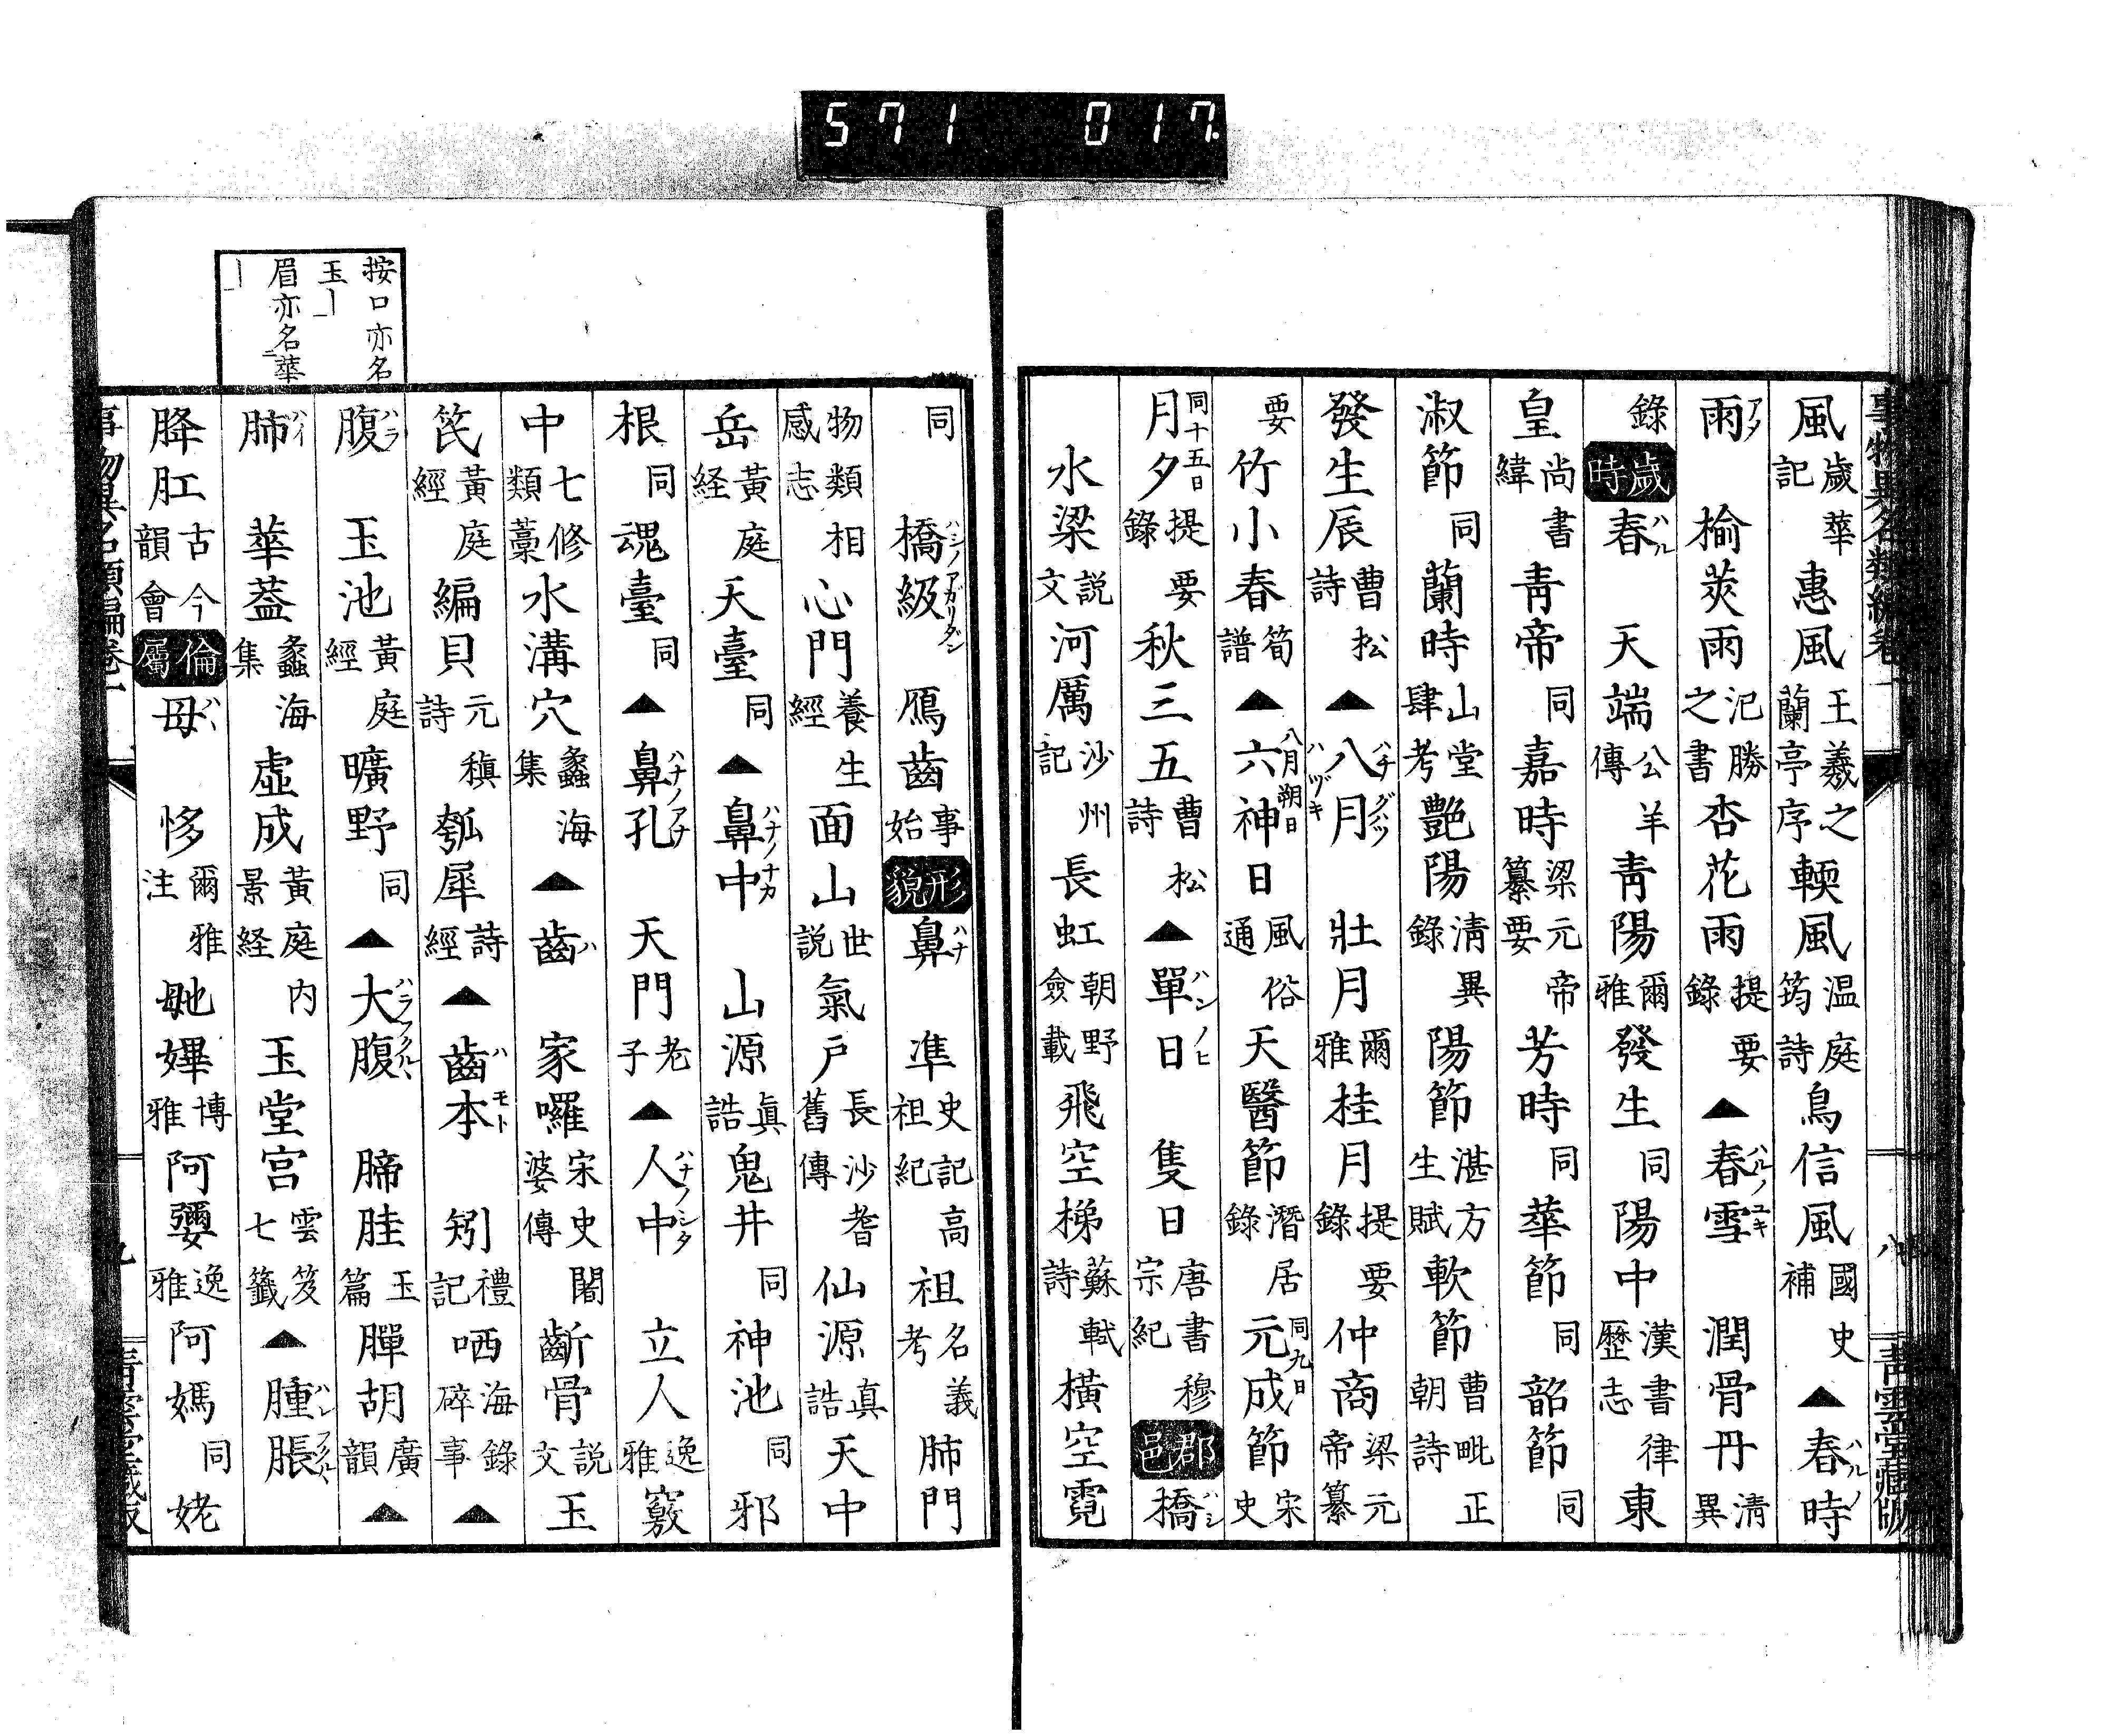 571 017.
事物異名類編卷一 八 青雲堂藏版
風歲華記 惠風王羲之蘭亭序 輭風温庭筠詩 鳥信風國史補 ▲春時ハルノ
雨アメ 榆莢雨氾勝之書 杏花雨提要錄 ▲春雪ハルノユキ 潤骨丹淸異
錄 歲時 春ハル 天端公羊傳 靑陽爾雅 發生同 陽中漢書律歷志 東
皇尚書緯 靑帝同 嘉時梁元帝纂要 芳時同 華節同 韶節同
淑節同 蘭時山堂肆考 艷陽淸異錄 陽節湛方生賦 軟節曹毗正朝詩
發生辰曹松詩 ▲八月ハチグハツハヅキ 壯月爾雅 桂月提要錄 仲商梁元帝纂
要 竹小春筍譜 ▲六神日八月朔日 風俗通 天醫節潛居錄 元成節同九日 宋史
月夕同十五日 提要錄 秋三五曹松詩 ▲單日ハンノヒ 隻日唐書穆宗紀 郡邑 橋ハシ
水梁説文 河厲沙州記 長虹朝野僉載 飛空梯蘇軾詩 橫空霓
同 橋級ハシノアガリダン 鴈齒事始 形貌 鼻ハナ 準史記高祖紀 祖名義考 肺門
物類相感志 心門養生經 面山世説 氣戸長沙耆舊傳 仙源真誥 天中
岳黃庭経 天臺同 ▲鼻中ハナノナカ 山源眞誥 鬼井同 神池同 邪
根同 魂臺同 ▲鼻孔ハナノアナ 天門老子 ▲人中ハナノシタ 立人逸雅 竅
中七修類藁 水溝穴蠡海集 ▲齒ハ 家囉宋史闍婆傳 齗骨説文 玉
笢黃庭經 編貝元稹詩 瓠犀詩經 ▲齒本ハモト 矧禮記 哂海錄碎事 ▲
腹ハラ 玉池黃庭經 曠野同 ▲大腹ハラフクルヽ 腣胿玉篇 胆胡廣韻 ▲
肺ハイ 華葢蠡海集 虛成黃庭内景経 玉堂宮雲笈七籤 ▲腫脹ハレフクルヽ
胮肛古今韻會 倫屬 母ハヽ 恀爾雅注 毑㜑博雅 阿㜷逸雅 阿媽同 姥
按口亦名
玉｜
眉亦名華
｜
事物異名類編卷一 九 青雲堂藏版